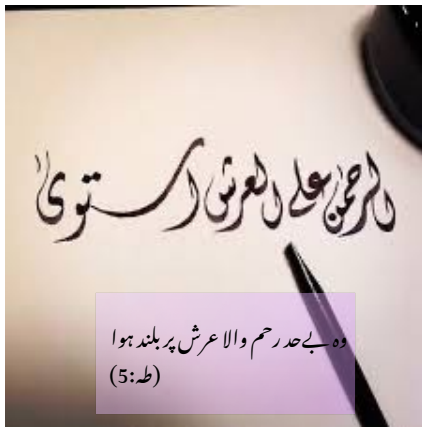 الرحمن على العرش استوى
وہ بےحد رحم والا عرش پر بلند ہوا
(طہ:5)